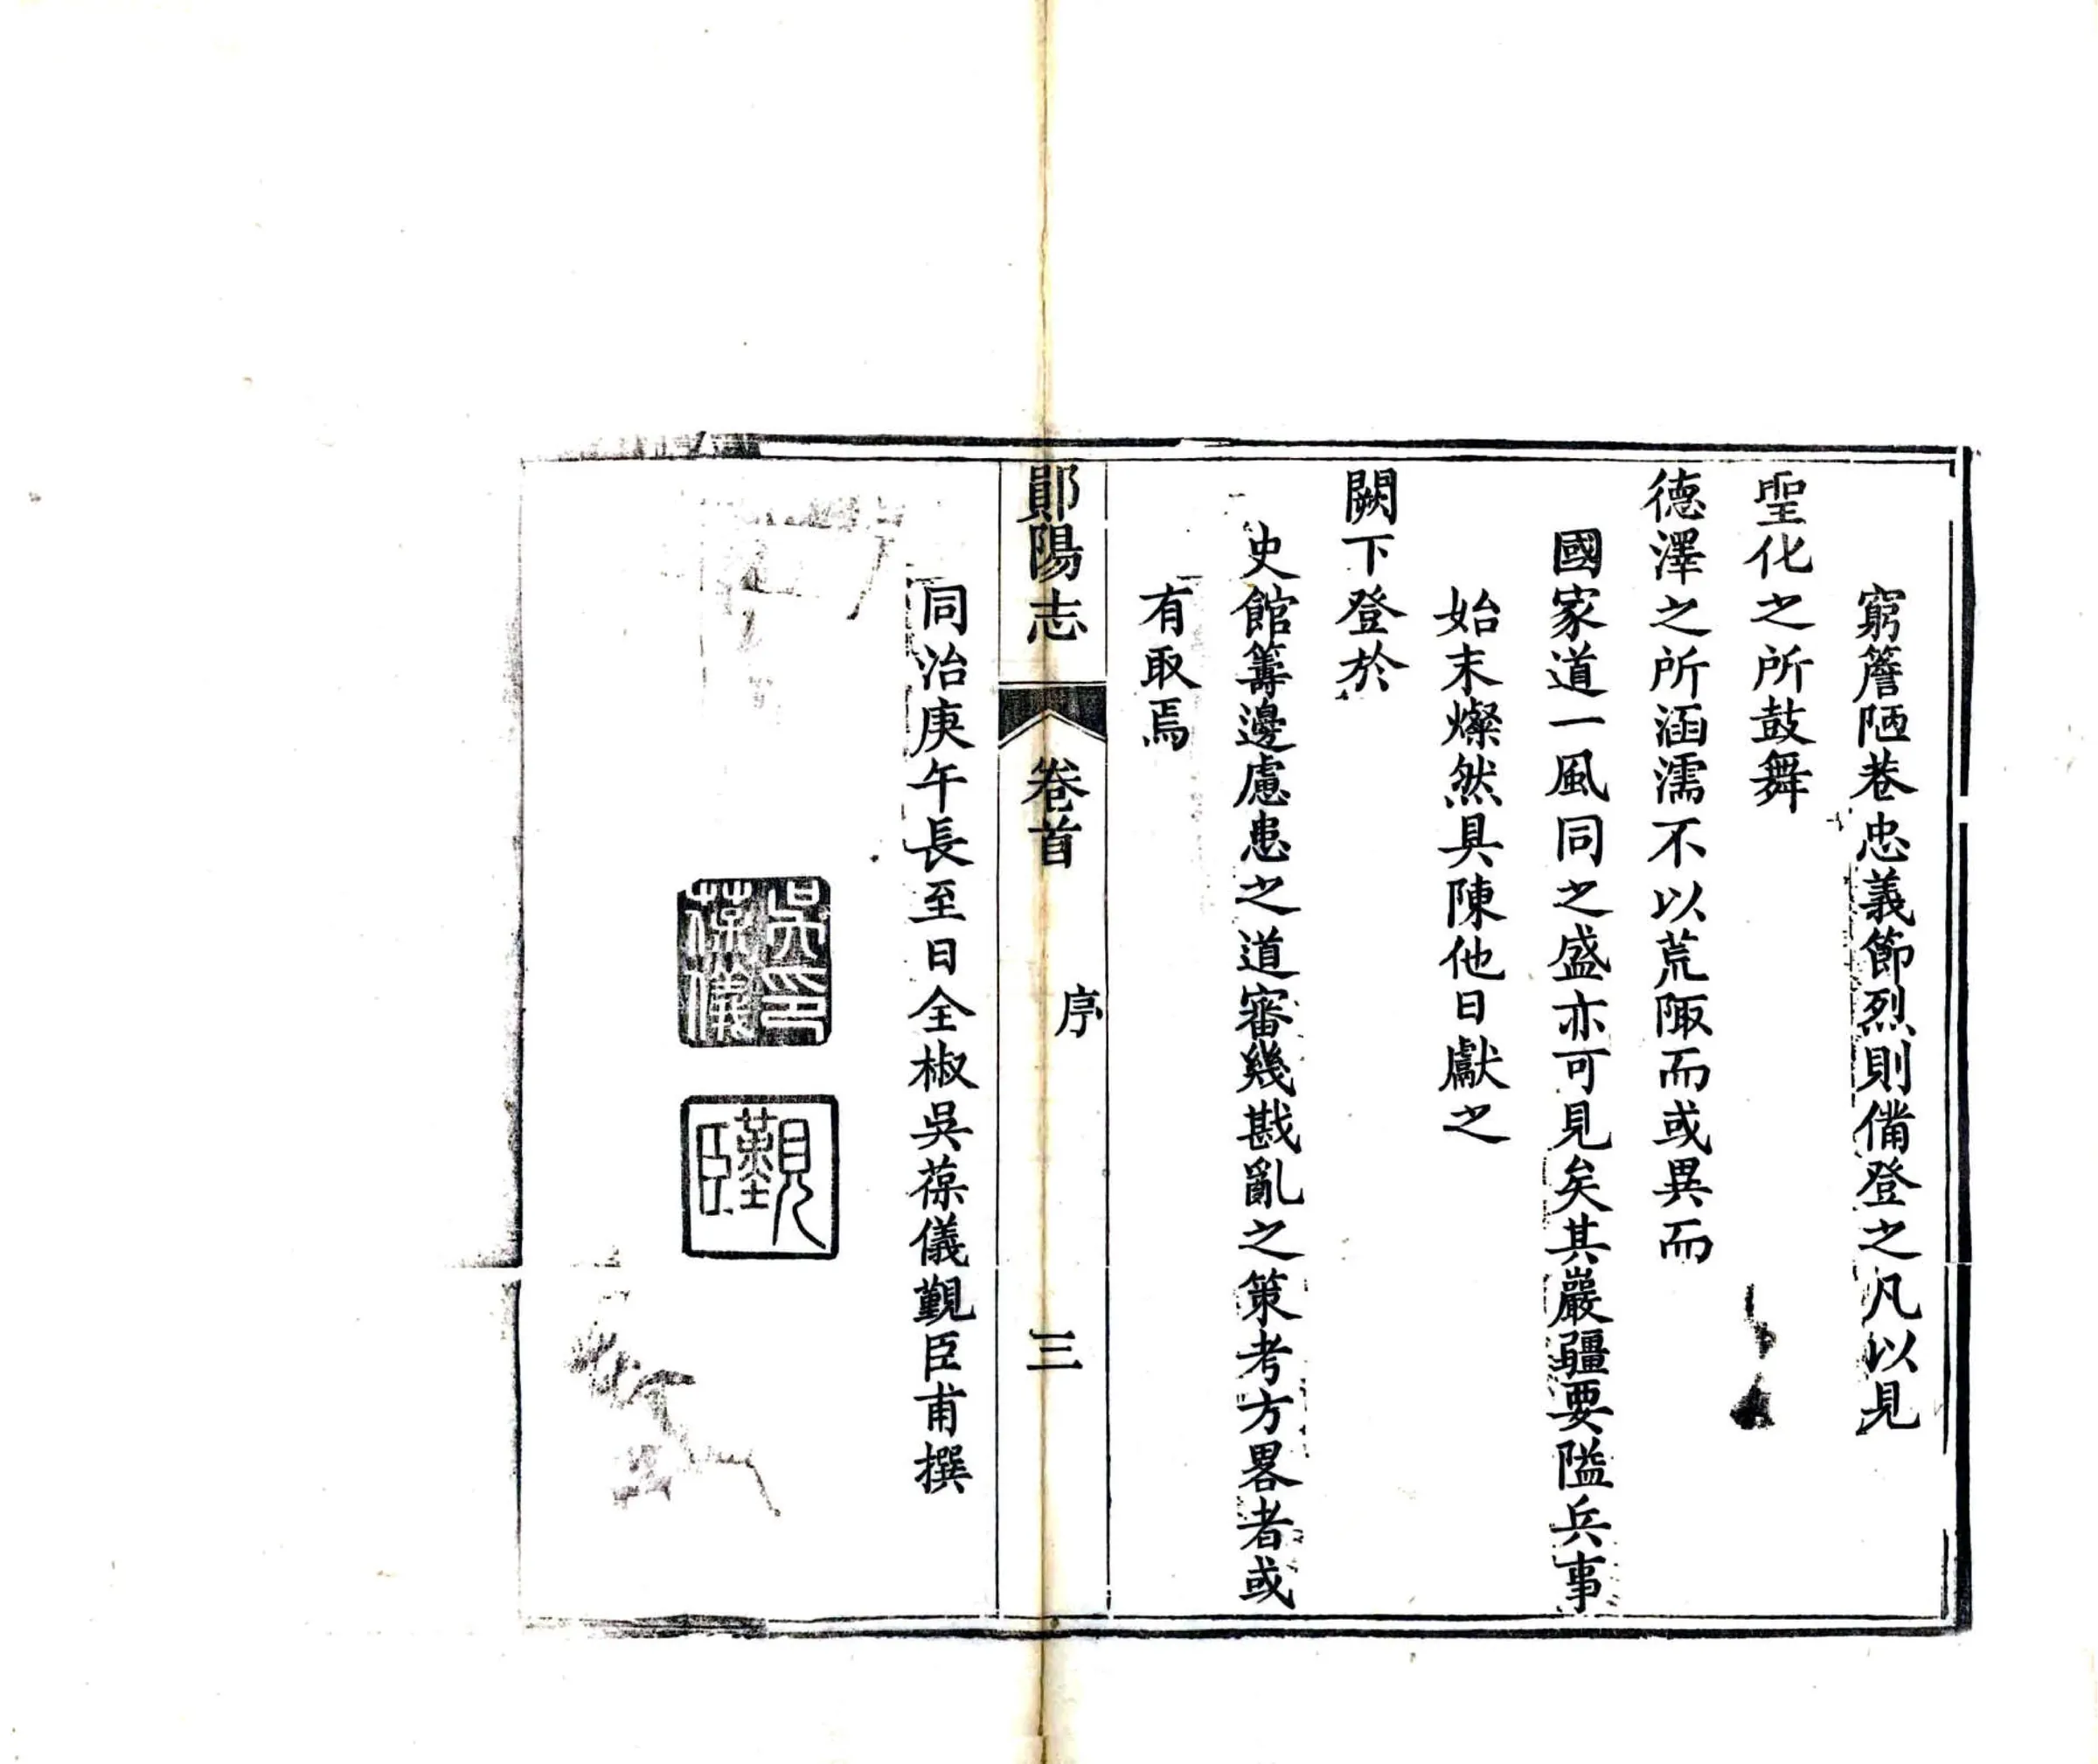 窮簷陋巷忠義節烈則備登之凡以見
聖化之所鼓舞
德澤之所涵濡不以荒陬而或異而
國家道一風同之盛亦可見矣其巖疆要隘兵事
始末燦然具陳他日獻之
闕下登於
史館籌邊慮患之道審幾戡亂之策考方畧者或
有取焉
鄖陽志
卷首
序
三
同治庚午長至日全椒吳葆儀覲臣甫撰
吳印葆儀
覲臣